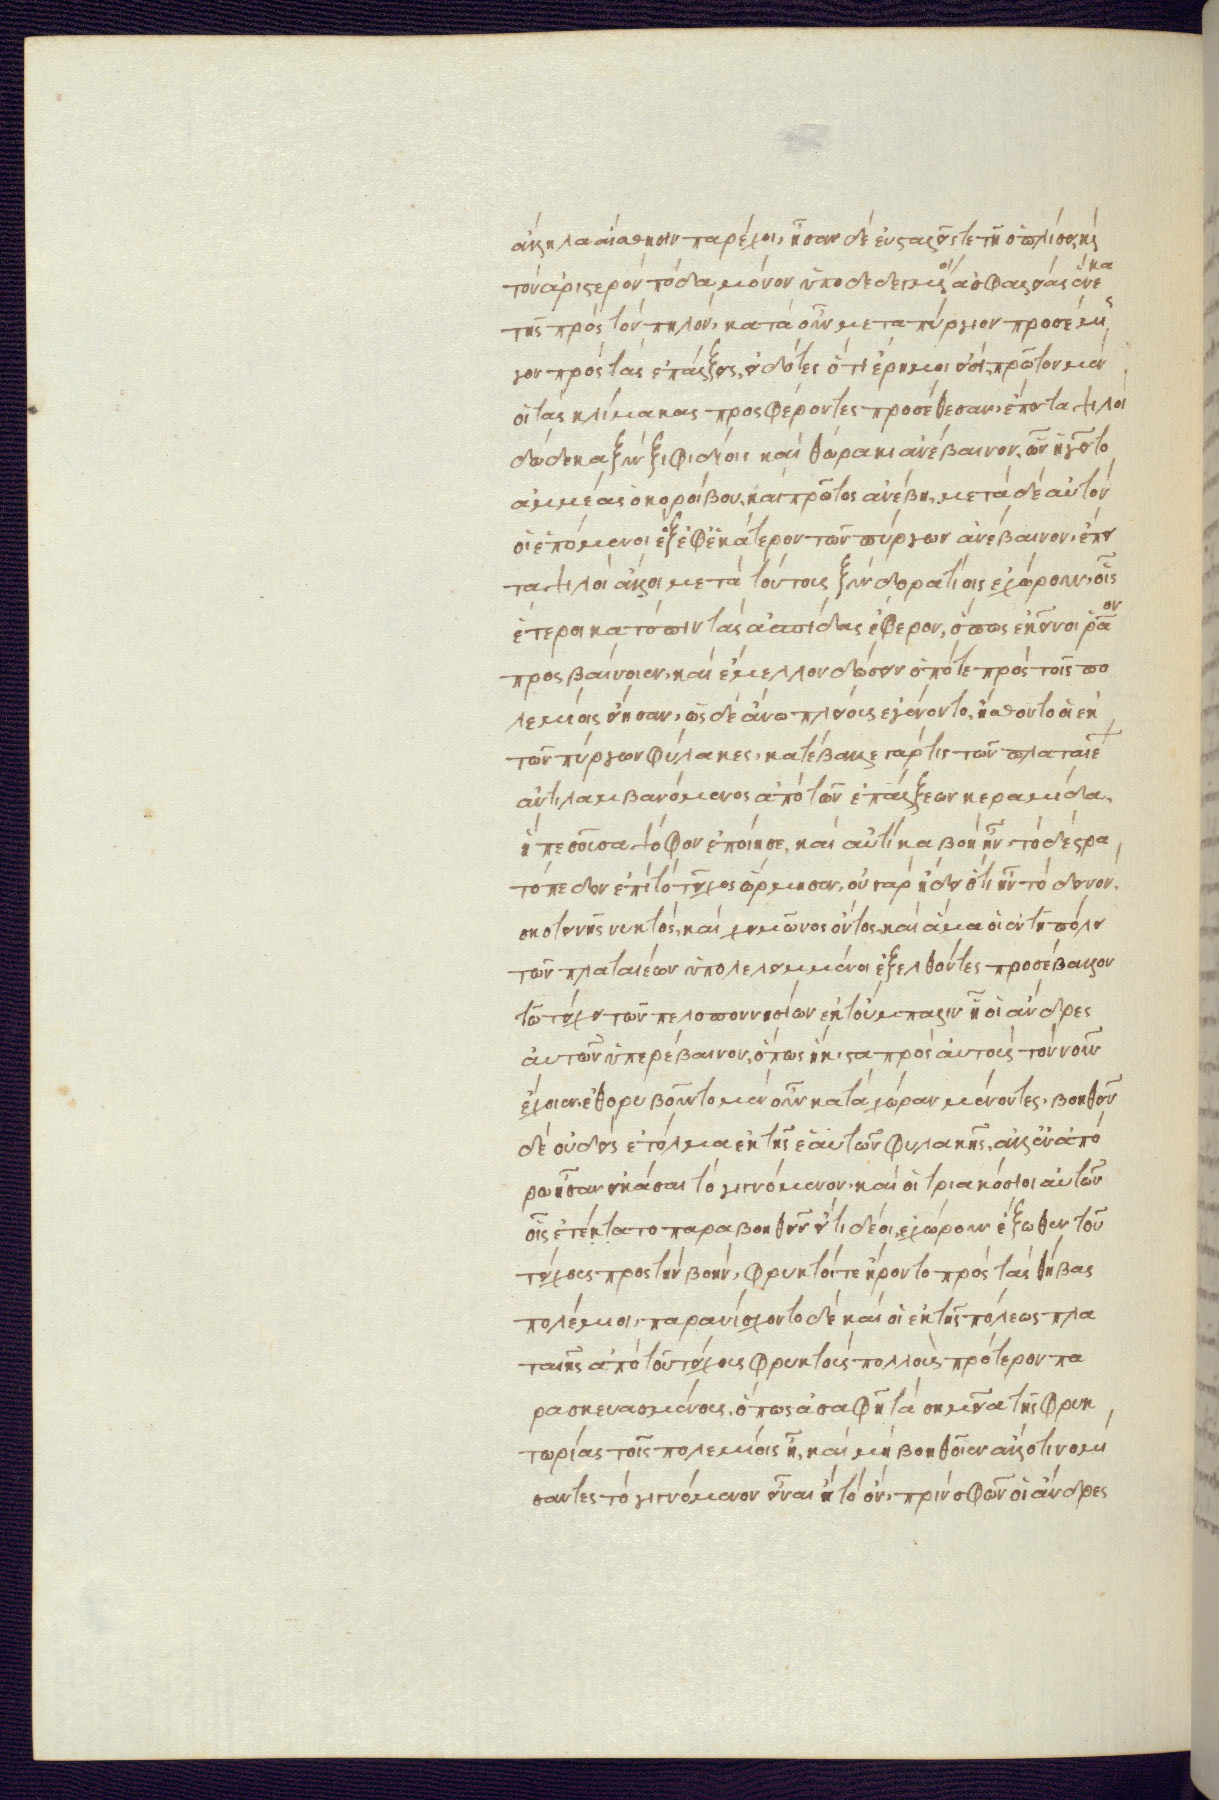 ἄλληλα αἴσθησιν παρέχοι, ἦσαν δὲ εὐσταλεῖς τε τῇ ὁπλίσει, καὶ
τὸν ἀριστερὸν πόδα μόνον ὑποδεδεμένοι ἀσφαλείας ἕνεκα
τῆς πρὸς τὸν πηλόν, κατὰ οὖν μεταπύργιον προσέμι
γον πρὸς τὰς ἐπάλξεις, εἰδότες ὅτι ἔρημοι εἰσί, πρῶτον μὲν
οἱ τὰς κλίμακας προσφέροντες προσέθεσαν, ἔπειτα ψιλοὶ
δώδεκα ξὺν ξιφιδίοις καὶ θώρακι ἀνέβαινον, ὧν ἡγεῖτο
ἀμμέας ὁ κοροίβου, καὶ πρῶτος ἀνέβη, μετὰ δὲ αὐτὸν
οἱ ἑπόμενοι ἓξ ἐφ' ἑκάτερον τῶν πύργων ἀνέβαινον, ἔπει
τα ψιλοὶ ἄλλοι μετὰ τούτους ξὺν δορατίοις ἐχώρουν, οἷς
ἕτεροι κατόπιν τὰς ἀσπίδας ἔφερον, ὅπως ἐκεῖνοι ῥᾷον
προσβαίνοιεν, καὶ ἔμελλον δώσειν ὁπότε πρὸς τοῖς πο
λεμίοις εἴησαν, ὡς δὲ ἄνω πλείους ἐγένοντο, ᾔσθοντο οἱ ἐκ
τῶν πύργων φύλακες, κατέβαλε γάρ τις τῶν πλαταιέων
ἀντιλαμβανόμενος ἀπὸ τῶν ἐπάλξεων κεραμίδα,
ἣ πεσοῦσα ψόφον ἐποίησε, καὶ αὐτίκα βοὴ ἦν, τὸ δὲ στρα
τόπεδον ἐπὶ τὸ τεῖχος ὥρμησαν, οὐ γὰρ ᾔδει ὅτι ἦν τὸ δεινόν,
σκοτεινῆς νυκτὸς, καὶ χειμῶνος ὄντος, καὶ ἅμα οἱ ἐν τῇ πόλει
τῶν πλαταιέων ὑπολελειμμένοι ἐξελθόντες προσέβαλλον
τῷ τείχει τῶν πελοποννησίων ἐκ τοὔμπαλιν ἢ οἱ ἄνδρες
αὐτῶν ὑπερέβαινον, ὅπως ἥκιστα πρὸς αὐτοὺς τὸν νοῦν
ἔχοιεν, ἐθορυβοῦντο μὲν οὖν κατὰ χώραν μένοντες, βοηθεῖν
δὲ οὐδεὶς ἐτόλμα ἐκ τῆς ἑαυτῶν φυλακῆς, ἀλλ' ἐν ἀπό
ρῳ ἦσαν εἰκάσαι τὸ γιγνόμενον, καὶ οἱ τριακόσιοι αὐτῶν
οἷς ἐτέτακτο παραβοηθεῖν εἴ τι δέοι, ἐχώρουν ἔξωθεν τοῦ
τείχους πρὸς τὴν βοήν, φρυκτοί τε ᾔροντο πρὸς τὰς θήβας
πολέμιοι, παρανίσχοντο δὲ καὶ οἱ ἐκ τῆς πόλεως πλα
ταιῆς ἀπὸ τοῦ τείχους φρυκτοὺς πολλοὺς πρότερον πα
ρασκευασμένους, ὅπως ἀσαφῆ τὰ σημεῖα τῆς φρυκ
τωρίας τοῖς πολεμίοις ᾖ, καὶ μὴ βοηθοῖεν ἄλλο τι νομί
σαντες τὸ γιγνόμενον εἶναι ἢ τὸ ὄν, πρὶν σφῶν οἱ ἄνδρες